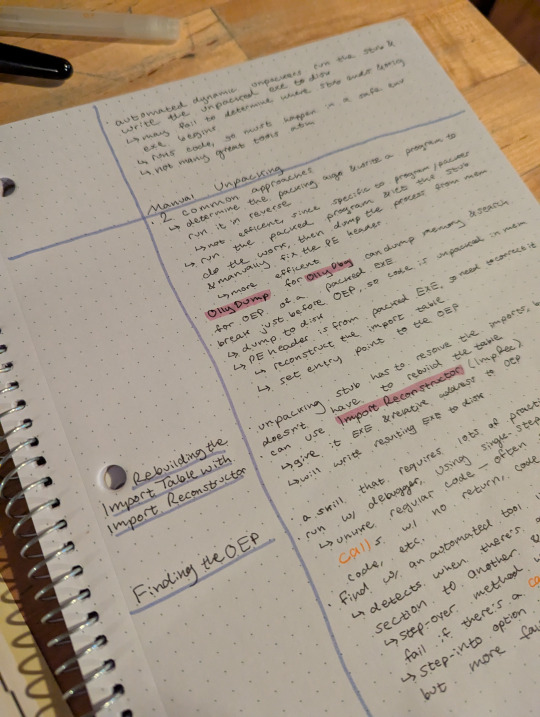 · automated dynamic unpackers run the stub &
write the unpacked exe to disk
↳ may fail to determine where stub ends & orig
exe begins
↳ runs code, so must happen in a safe env
↳ not many great tools atm
Manual Unpacking
· 2 common approaches
↳ determine the packing algo & write a program to
run it in reverse
↳ not efficient since specific to program/packer
↳ run the packed program & lets the stub
do the work, then dump the process from mem
& manually fix the PE header
↳ more efficient
OllyDump for OllyDbg can dump memory & search
for OEP of a packed EXE
break just before OEP, so code is unpacked in mem
↳ dump to disk
↳ PE header is from packed EXE, so need to correct it
↳ reconstruct the import table
↳ set entry point to the OEP
Rebuilding the
Import Table with
Import Reconstructor
· unpacking stub has to resolve the imports, b
doesn't have to rebuild the table
· can use Import Reconstructor (ImpRec)
↳ give it EXE & relative address to OEP
↳ will write resulting EXE to disk
Finding the OEP
· a skill that requires lots of practi
· run w/ debugger, using single-step
↳ unlike regular code — often
calls w/ no return, code
code, etc.
· find w/ an automated tool li
↳ detects when there's a
section to another &
↳ step-over method w
fail if there's a ca
↳ step-into option
but more fal